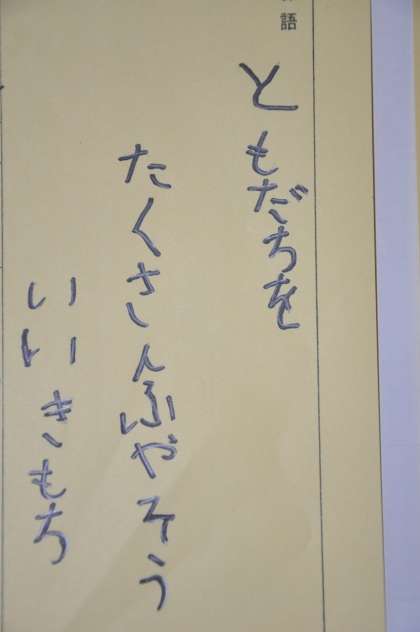 語
ともだちを
たくさんふやそう
いいきもち